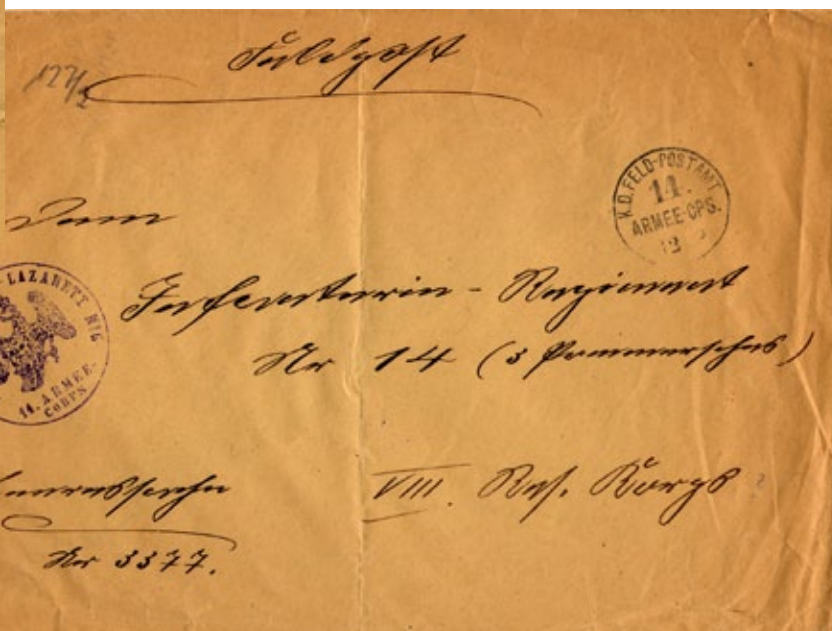 Feldpost
K.D. FELD-POSTAMT
14.
ARMEE-CPS.
12
Dem
LAZARETT
14. ARMEE-
CORPS
Infanterie-Regiment
Nr 14 (3 Pommersches)
VIII. Res. Korps
Nr 3377.